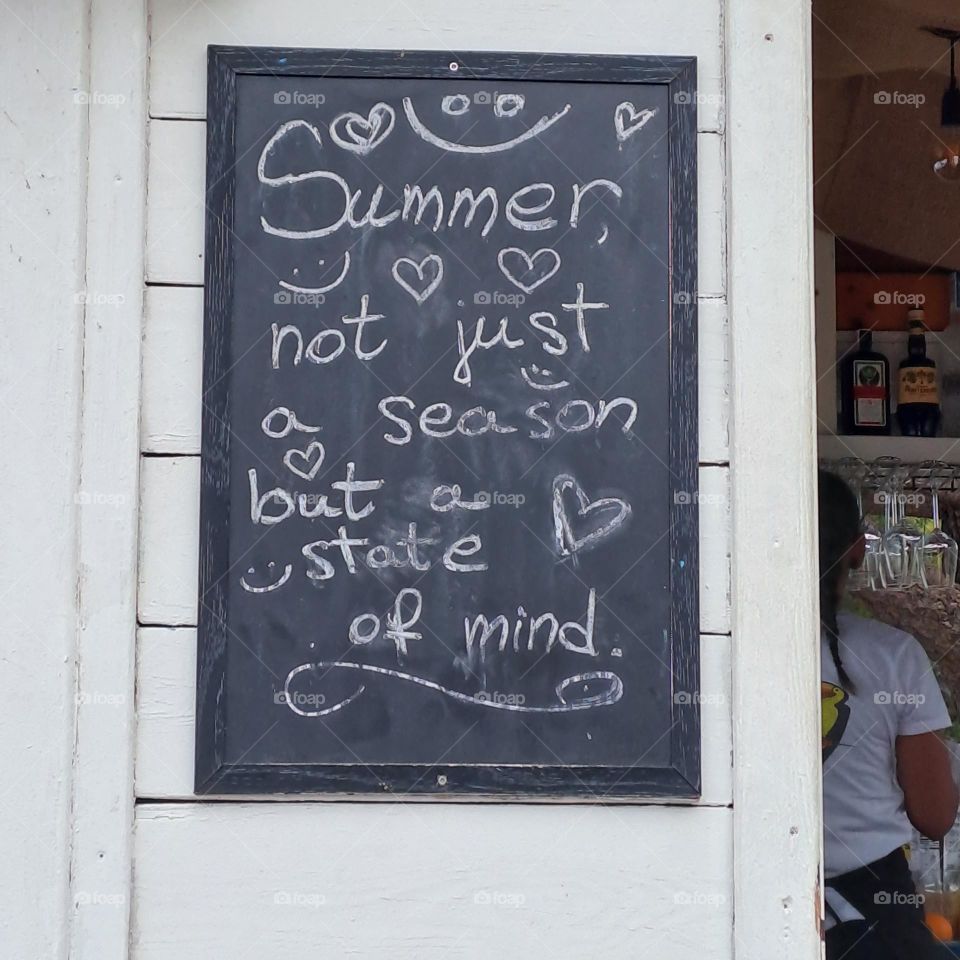 Summer,
not just
a season
but a
state
of mind.